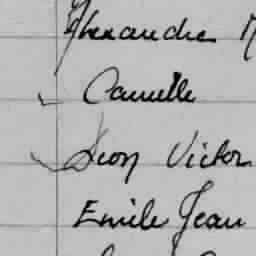 Alexandre
Camille
Léon Victor
Emile Jean